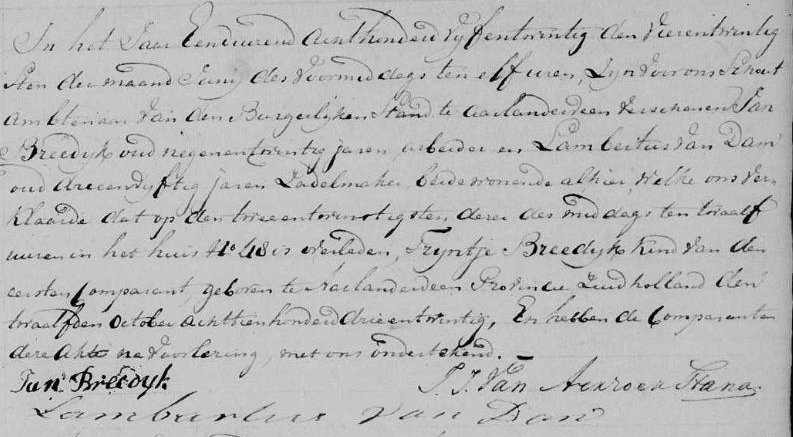 In het Jaar Eenduizend achthonderd vijfentwintig den vierentwintig
sten der maand Junij des voormiddags ten elf uren, zyn voor ons Schout
Ambtenaar van den Burgerlyken Stand te Aarlanderveen verschenen Jan
Breedyk oud negenentwintig jaren, arbeider en Lambertus van Dam
oud drieenvyftig jaren Zadelmaker beide wonende alhier, welke ons ver
klaarde dat op den tweeentwintigsten dezer des middags ten twaalf
uuren in het huis No 48 is overleden, Tryntje Breedyk kind van den
eersten Comparant, geboren te Aarlanderveen Provincie Zuidholland den
twaalfden October achttienhonderd drieentwintig, En hebben de Comparanten
deze Akte na voorlezing, met ons ondertekend.
Jan Breedyk
Lambartus van Dam